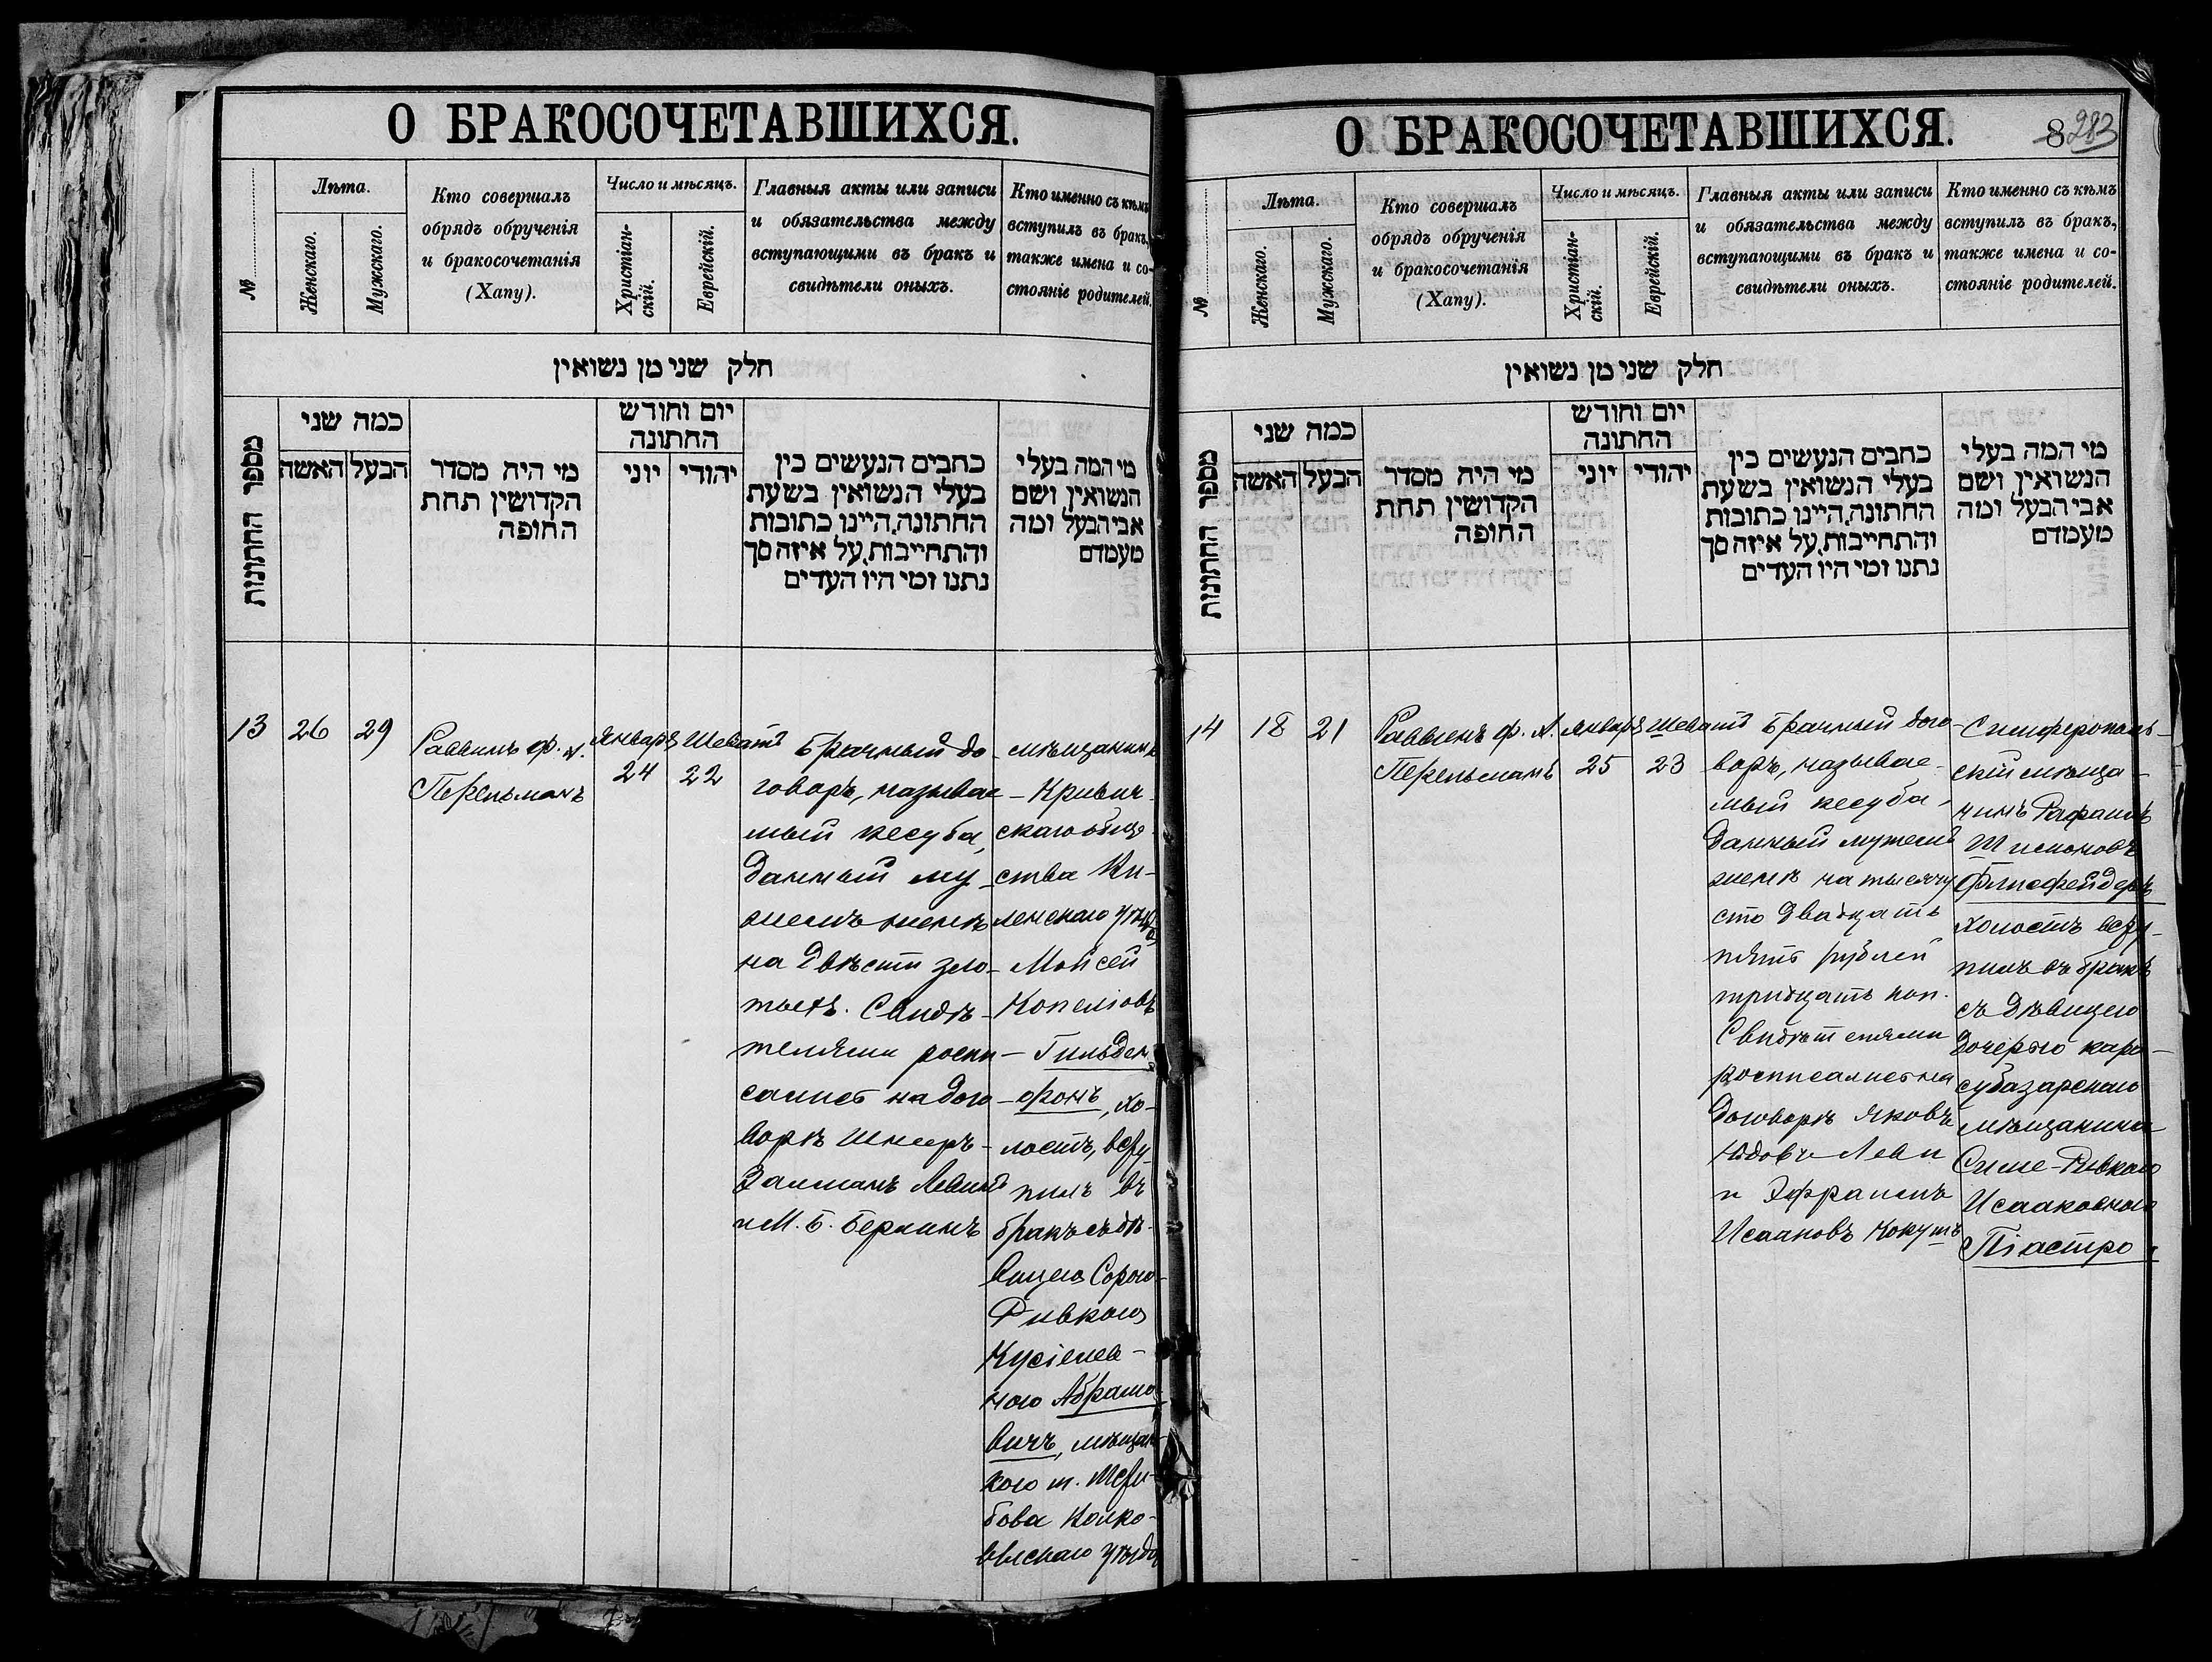 О БРАКОСОЧЕТАВШИХСЯ.
№
Лѣта.
Женскаго.
Мужскаго.
Кто совершалъ
обрядъ обрученія
и бракосочетанія
(Хапу).
Число и мѣсяцъ.
Христіан-
скій.
Еврейскій.
Главныя акты или записи
и обязательства между
вступающими въ бракъ и
свидѣтели оныхъ.
Кто именно съ кѣмъ
вступилъ въ бракъ,
также имена и со-
стояніе родителей.
חלק שני מן נשואין
מספר החתונות
כמה שני
האשה
הבעל
מי היה מסדר
הקדושין תחת
החופה
יום וחודש
החתונה
יוני
יהודי
כתבים הנעשים בין
בעלי הנשואין בשעת
החתונה, היינו כתובות
והתחייבות, על איזה סך
נתנו ומי היו העדים
מי המה בעלי
הנשואין ושם
אבי הבעל ומה
מעמדם
13
26
29
Раввинъ Ф. А.
Перельманъ
Январь
24
Шеватъ
22
Брачный до-
говоръ, называе-
мый кесуба,
данный му-
жемъ женѣ
на двѣсти зло-
тыхъ. Свидѣ-
телями роспи-
сались на дого-
ворѣ Шнеръ-
Залманъ Левинъ
и М. Б. Берлинъ
мѣщанинъ
Кривич-
скаго обще-
ства Ви-
ленскаго уѣзда
Мойсей
Копелiовъ
Гильден-
фонъ, хо-
лостъ, всту-
пилъ въ
бракъ съ дѣ-
вицею Сорою-
Ривкою
Кусіелев-
ною Абрамо-
вичъ, мѣщан-
кою м.
уѣзда
О БРАКОСОЧЕТАВШИХСЯ.
8 283
№
Лѣта.
Женскаго.
Мужскаго.
Кто совершалъ
обрядъ обрученія
и бракосочетанія
(Хапу).
Число и мѣсяцъ.
Христіан-
скій.
Еврейскій.
Главныя акты или записи
и обязательства между
вступающими въ бракъ и
свидѣтели оныхъ.
Кто именно съ кѣмъ
вступилъ въ бракъ,
также имена и со-
стояніе родителей.
חלק שני מן נשואין
מספר החתונות
כמה שני
האשה
הבעל
מי היה מסדר
הקדושין תחת
החופה
יום וחודש
החתונה
יוני
יהודי
כתבים הנעשים בין
בעלי הנשואין בשעת
החתונה, היינו כתובות
והתחייבות, על איזה סך
נתנו ומי היו העדים
מי המה בעלי
הנשואין ושם
אבי הבעל ומה
מעמדם
14
18
21
Раввинъ Ф. А.
Перельманъ
Январь
25
Шеватъ
23
Брачный дого-
воръ, называе-
мый кесуба,
данный мужемъ
женѣ на тысячу
сто двадцать
пять рублей
тридцать коп.
Свидѣтелями
росписались на
договорѣ Яковъ
Юдовъ Леви
и Эфраимъ
Исааковъ Кокушъ
Симферополь-
скій мѣща-
нинъ Рафаилъ
Шимоновъ
Флисфейдеръ
холостъ всту-
пилъ въ бракъ
съ дѣвицею
дочерью кара-
субазарскаго
мѣщанина
Симе-Ривкою
Исааковною
Піастро.